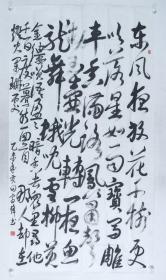 东风夜放花千树更
吹落星如雨宝马雕
车香满路凤箫声
动玉壶光转一夜鱼
龙舞蛾儿雪柳黄
金缕笑语盈盈暗香去众里寻他
千百度蓦然回首那人却在
灯火阑珊处